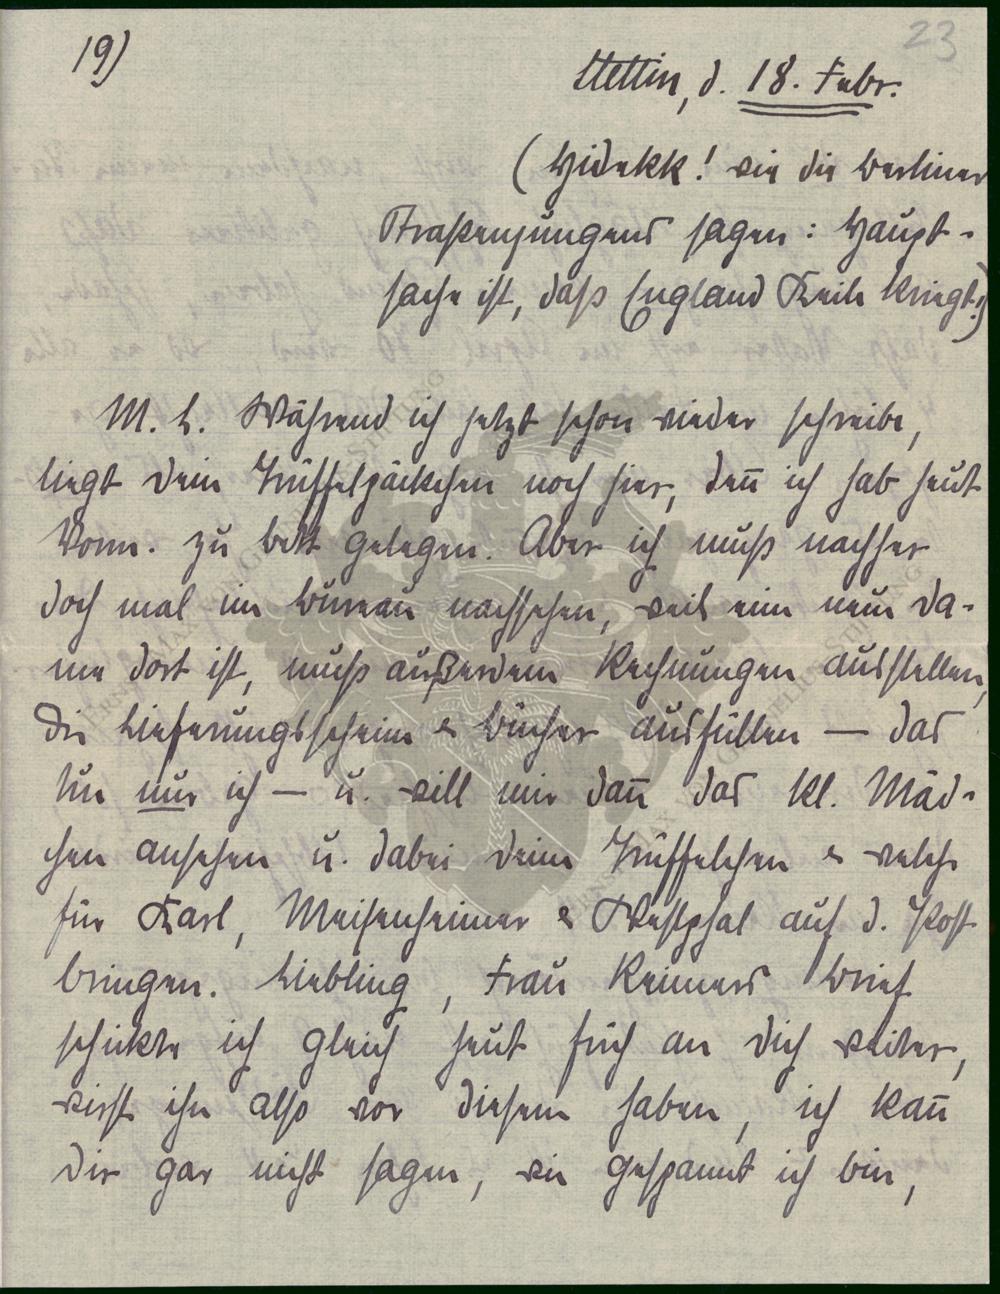 19)
23
Stettin, d. 18. Febr.
(Hidekk! wie die Berliner
Straßenjungens sagen: Haupt-
sache ist, daß England Keile kriegt!)
M. L. Während ich jetzt schon wieder schreibe,
liegt dein Trüffelpäckchen noch hier, den̄ ich hab heut
Vorm. zu bett gelegen. Aber ich muß nachher
doch mal im büreau nachsehen, weil eine neue Da-
me dort ist, muß außerdem Rechnungen ausstellen,
die Lieferungsscheine & bücher ausfüllen — das
tue nur ich — u. will mir dan̄ das kl. Mäd-
chen ansehen u. dabei deine Trüffelchen & welche
für Karl, Meisenheimer & Westphal auf d. Post
bringen. Liebling, Frau Reimers brief
schickte ich gleich heut früh an dich weiter,
wirst ihn also vor diesem haben, ich kan̄
dir gar nicht sagen, wie gespannt ich bin,